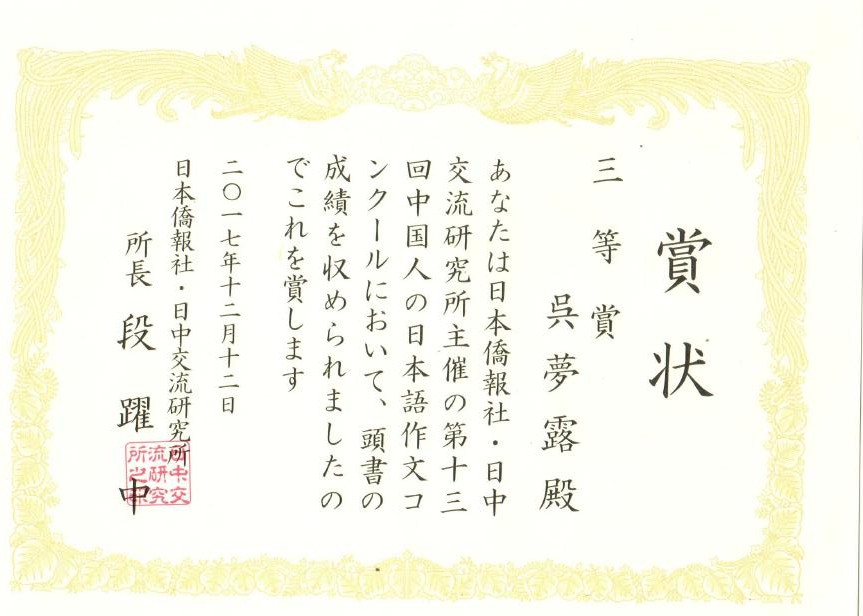 賞状
三等賞
呉夢露殿
あなたは日本僑報社・日中
交流研究所主催の第十三
回中国人の日本語作文コ
ンクールにおいて、頭書の
成績を収められましたの
でこれを賞します
二〇一七年十二月十二日
日本僑報社・日中交流研究所
所長 段躍中
日中交
流研究
所之印